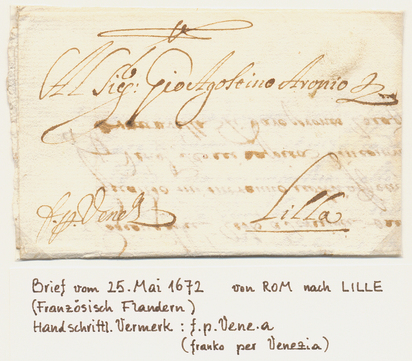 Al Sigr: Gio Agostino Aronio
f. pp. Vene.a
Lilla
Brief vom 25. Mai 1672 von ROM nach LILLE
(Französisch Flandern)
Handschriftl. Vermerk : f.p. Vene.a
(franko per Venezia)